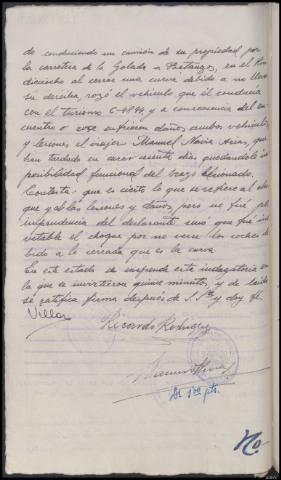 do conduciendo un camión de su propiedad por
la carretera de la Golada a Betanzos, en el
al cerrar una curva debido a no llevar
su derecha, rozó el vehículo que él conducía
con el turismo C-4844 y a consecuencia del en
cuentro o roce sufrieron daños ambos vehículos
y lesiones el viajero Manuel Navia Arias, que
han tardado en curar sesenta días, quedando
posibilidad funcional del brazo lesionado.
Contesta: que es cierto lo que se refiere al
que hablan lesiones y daños, pero no fué por
imprudencia del declarante sinó que fué inevi
table el choque por no verse los coches de
bido a lo cerrada que es la curva.
En este estado se suspende esta indagatoria en
la que se invirtieron quince minutos, y de leída
se ratifica firma después de S.Sª y doy fe.
Villar
Ricardo Rodriguez